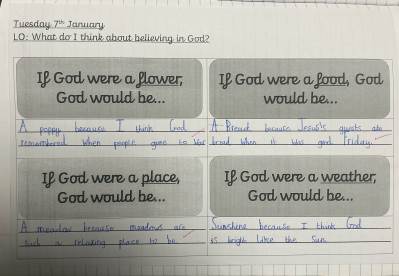 Tuesday 7th January
LO: What do I think about believing in God?
If God were a flower,
God would be...
A poppy because I think God
remembered when people goes to War
If God were a food, God
would be...
A Bread because Jesus's guests ate
bread when it was good friday.
If God were a place,
God would be...
A meadow because meadows are
such a relaxing place to be.
If God were a weather,
God would be...
Sunshine because I think God
is bright like the sun.